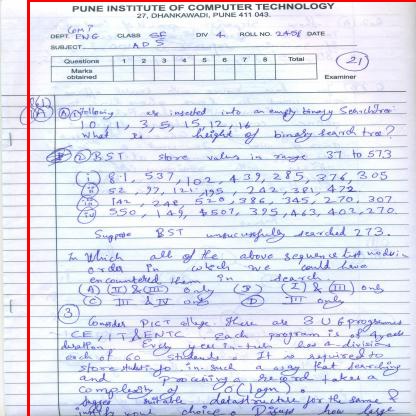 PUNE INSTITUTE OF COMPUTER TECHNOLOGY
27, DHANKAWADI, PUNE 411 043.
DEPT. ENG CLASS SE DIV 4 ROLL NO. 2458 DATE
SUBJECT ADS
Questions 1 2 3 4 5 6 7 8 Total
Marks obtained
21
Examiner
Following are inserted into an empty binary Search tree
10, 1, 3, 5, 15, 12, 16
What is height of binary search tree?
② BST store values in range 37 to 573
(i) 81, 537, 102, 439, 285, 376, 305
(ii) 52, 97, 121, 195, 242, 381, 472
(iii) 142, 248, 520, 386, 345, 270, 307
(iv) 550, 149, 507, 395, 463, 402, 270.
Suppose BST unsuccessfully searched 273.
In Which all of the above sequence list nodes in
order in which we could have
encountered them in search
(A) II & III only (B) I & III only
(C) III & IV only (D) III only
③
Consider PICT college there are 3 UG programmes
CE, IT & ENTC. Each program is of
duration. Every year in has divisions
each of 60 students. It is required to
store in such a way that searching
and processing a record takes a
complexity of O(1)
suitable datastructure for the same &
your choice. Discuss how